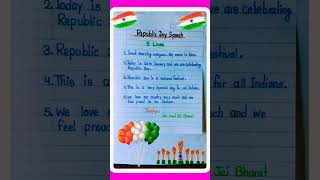 2. Today is
Republic
3. Republic
4. This is a
5. We love
feel proud
Republic Day Speech
5 Lines
1. Good morning everyone. My name is Ram.
2. Today is 26th January and we are celebrating
Republic day.
3. Republic day is a national festival.
4. This is a very special day for all Indians.
5. We love our country very much and we
feel proud to be Indians.
Thankyou
Jai Hind Jai Bharat
are celebrating
all Indians.
ch and we
Jai Bharat